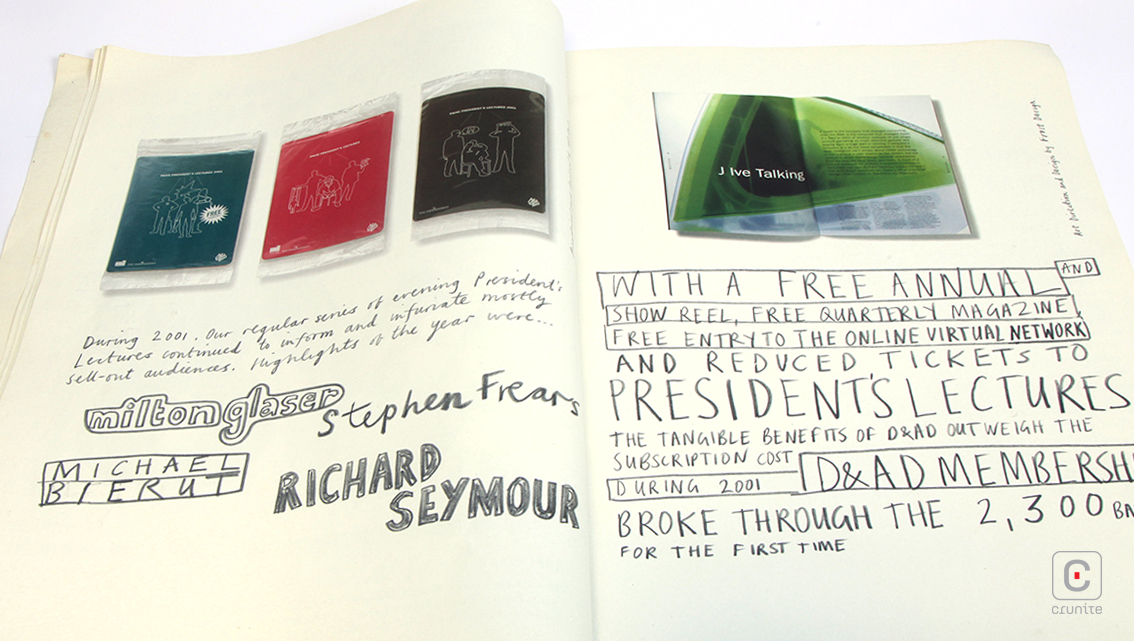 D&AD PRESIDENT'S LECTURES 2001
D&AD PRESIDENT'S LECTURES 2001
FREE
During 2001. Our regular series of evening President's
Lectures continued to inform and infuriate mostly
sell-out audiences. Highlights of the year were...
milton glaser
Stephen Frears
MICHAEL
BIERUT
RICHARD
SEYMOUR
J Ive Talking
Art Direction and Design by Frost Design
WITH A FREE ANNUAL AND
SHOW REEL, FREE QUARTERLY MAGAZINE,
FREE ENTRY TO THE ONLINE VIRTUAL NETWORK
AND REDUCED TICKETS TO
PRESIDENT'S LECTURES
THE TANGIBLE BENEFITS OF D&AD OUTWEIGH THE
SUBSCRIPTION COST
DURING 2001 D&AD MEMBERSH
BROKE THROUGH THE 2,300 BA
FOR THE FIRST TIME
crunite